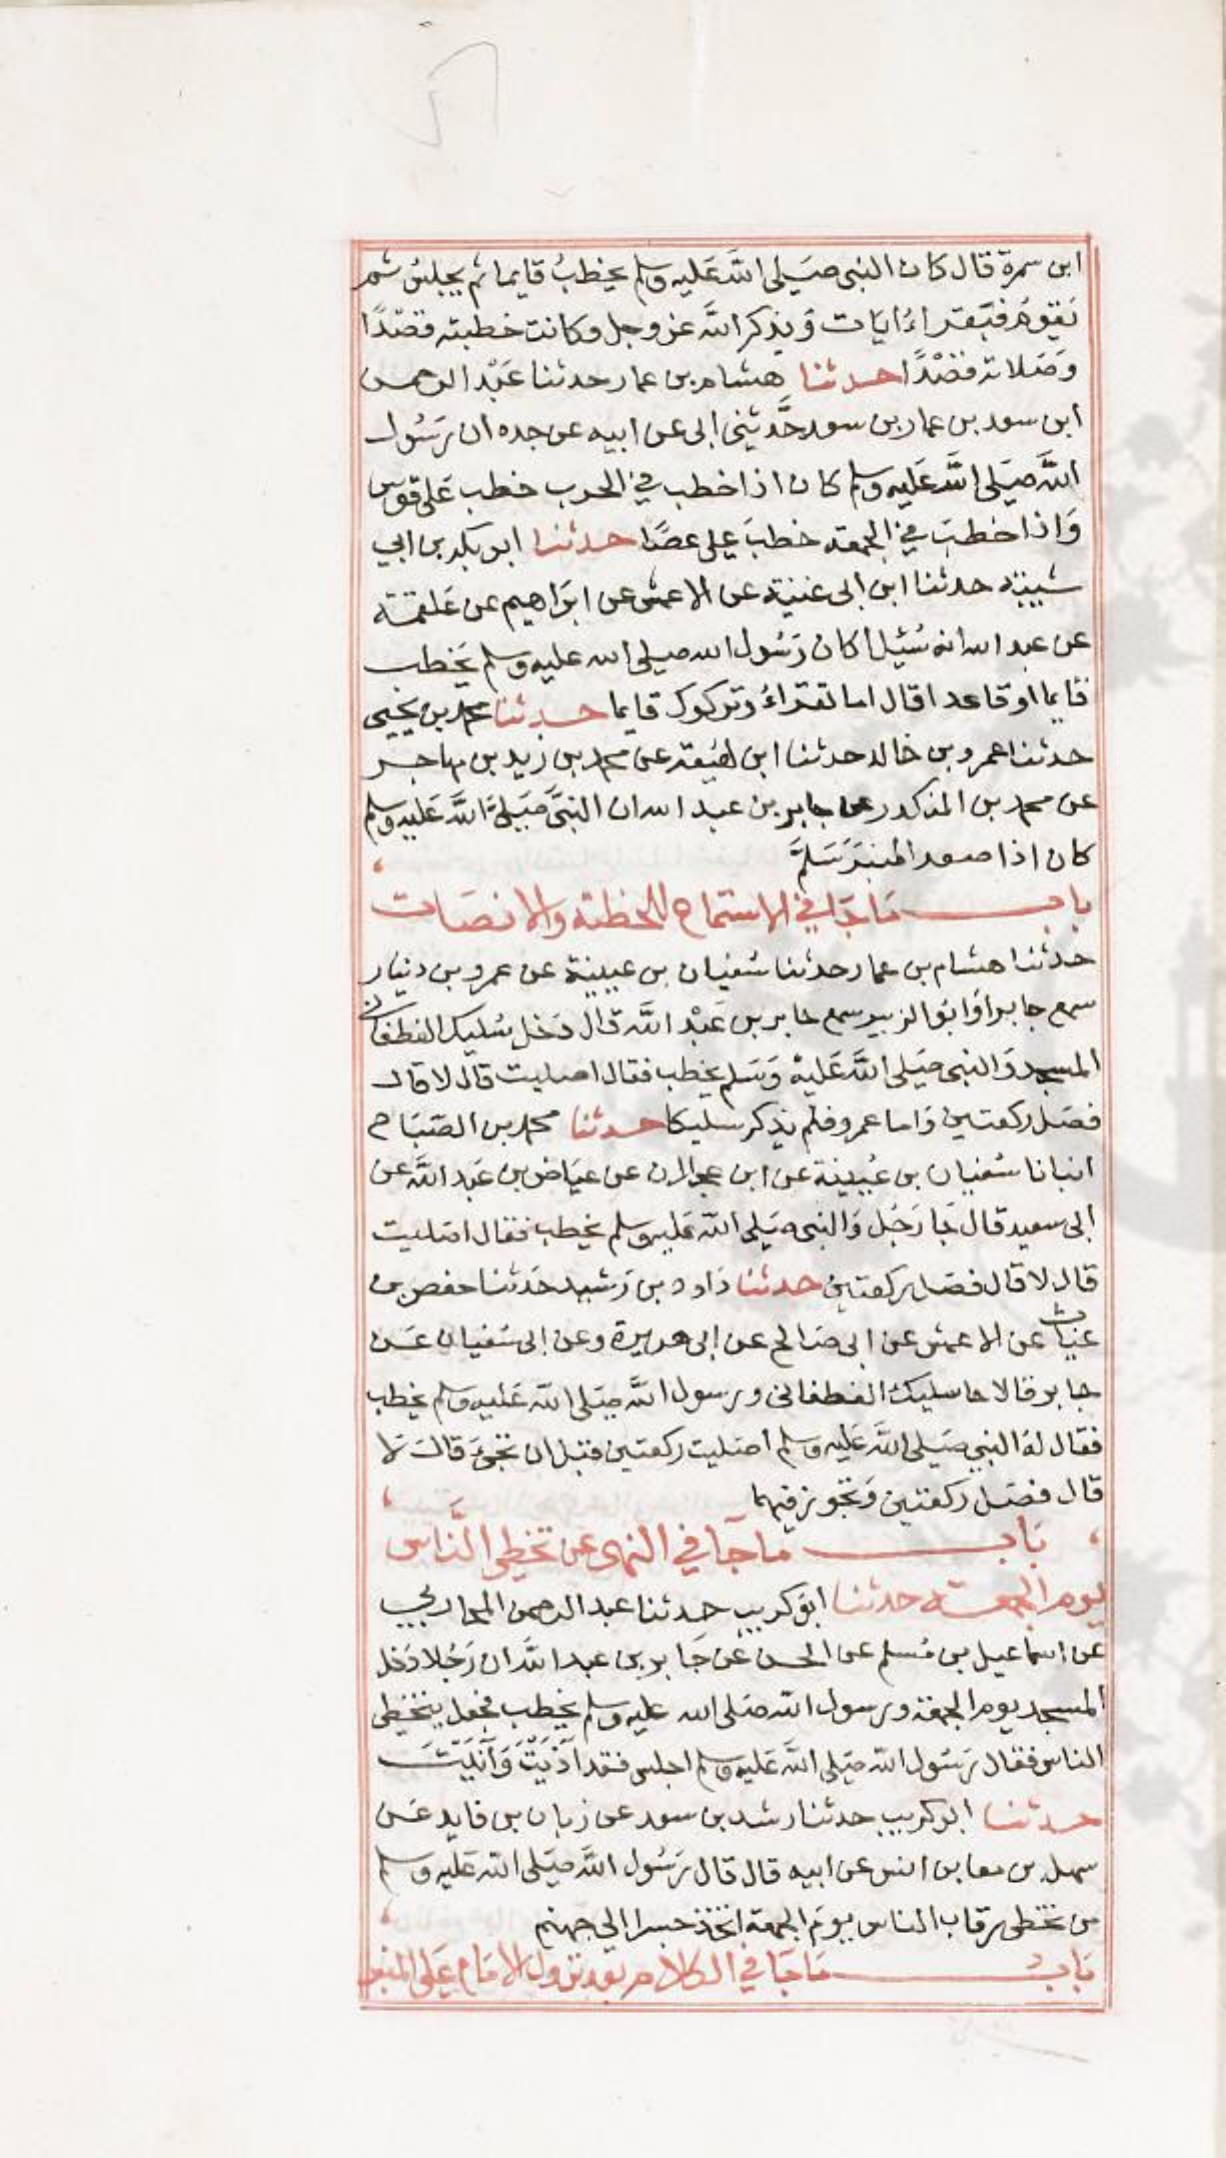 ابن سمرة قال كان النبى صَلى اللَّه عَليه وسلم يخطبُ قايما ثم يجلسُ ثمر
يَقوُم فيَقراءُ ايَات وَيذكر اللَّه عز وجل وكانت خطبته قصْدًا
وَصَلاته قصْدًا حدثنا هشام بن عمار حدثنا عَبْد الرحمن
ابن سعد بن عمار بن سعد حَدَّثنى ابى عن ابيه عن جده ان رَسُول
اللَّه صَلى اللَّه عَليه وسلم كان اذا خطب في الحرب خطب عَلى قوس
وَاذا خطبَ في الجمعة خطبَ على عصًا حدثنا ابو بكر بن ابي
شيبة حدثنا ابن ابى غنية عن الاعمش عن ابرَاهيم عن عَلقمَة
عن عبد الله انه سُئِل اكان رَسُول الله صلى الله عليه وسلم يَخطب
قايما او قاعدا قال اما تقراءُ وتركوك قايما حدثنا محمد بن يَحيى
حدثنا عمرو بن خالد حدثنا ابن لهيْعَة عن محمد بن زيد بن مهاجر
عن محمد بن المنكدر عن جابر بن عبد الله ان النبَّى صَلى اللَّه عَليه وسلم
كان اذا صعد المنبَر سَلمَّ
باب مَا جَا في الاستماع للخطبة والانصَات
حدثنا هشام بن عمار حدثنا سُفيان بن عيينة عن عمرو بن دنيار
سمع جابرا وَابَو الزبير سمع جابر بن عَبْد اللَّه قال دَخل سُليك الغطفانى
المسجد وَالنبى صَلى اللَّه عَليْه وَسَلم يخطب فقال اصليت قال لا قال
فصَل ركعتين وَاما عمرو فلم يذكر سليكا حدثنا محمد بن الصَبَاح
انبانا سُفيان بن عُيينة عن ابن عجلان عن عيَاض بن عَبد اللَّه عن
ابى سعيد قال جَا رَجُل وَالنبى صَلى اللَّه عَليه وسلم يخطب فقال اصَليت
قال لا قال فصَل ركعتين حدثنا دَاود بن رَشيد حَدثنا حفص بن
غياث عن الاعمش عن ابى صَالح عن ابى هريرة وعن ابى سُفيان عَن
جابر قالا جا سليك الغطفانى ورسول اللَّه صَلى اللَّه عَليه وسلم يخطب
فقال لهُ النبي صَلى اللَّه عَليه وسلم اصَليت ركعتين قبل ان تجئ قالَ لا
قال فصَل رَكعتين وَتجوز فيهما
بَاب مَا جَآ في النهى عن تخطى النَّاس
يوم الجمعة حدثنا ابَو كريب حدثنا عبد الرحمن المحاربي
عن اسماعيل بن مُسلم عن الحسن عَن جَابر بن عبد اللَّه ان رَجُلا دَخل
المسجد يوم الجمعة ورسول الله صَلى الله عليه وسلم يخطب فجعل يتخطى
الناس فقال رَسُول اللَّه صَلى اللَّه عَليه وسلم اجلس فقد اَذَيْتَ وَآنَيْتَ
حدثنا ابو كريب حدثنا رشد بن سعد عن زبان بن فايد عَن
سهل بن معا بن انس عن ابيه قال قال رَسُول اللَّه صَلى اللَّه عَليه وسلم
من تخطى رقاب الناس يوَم الجمعة اتخذ جسرا الى جهنم
بَاب مَا جَا في الكلام بَعد نزول الامَام عَلى المنبر